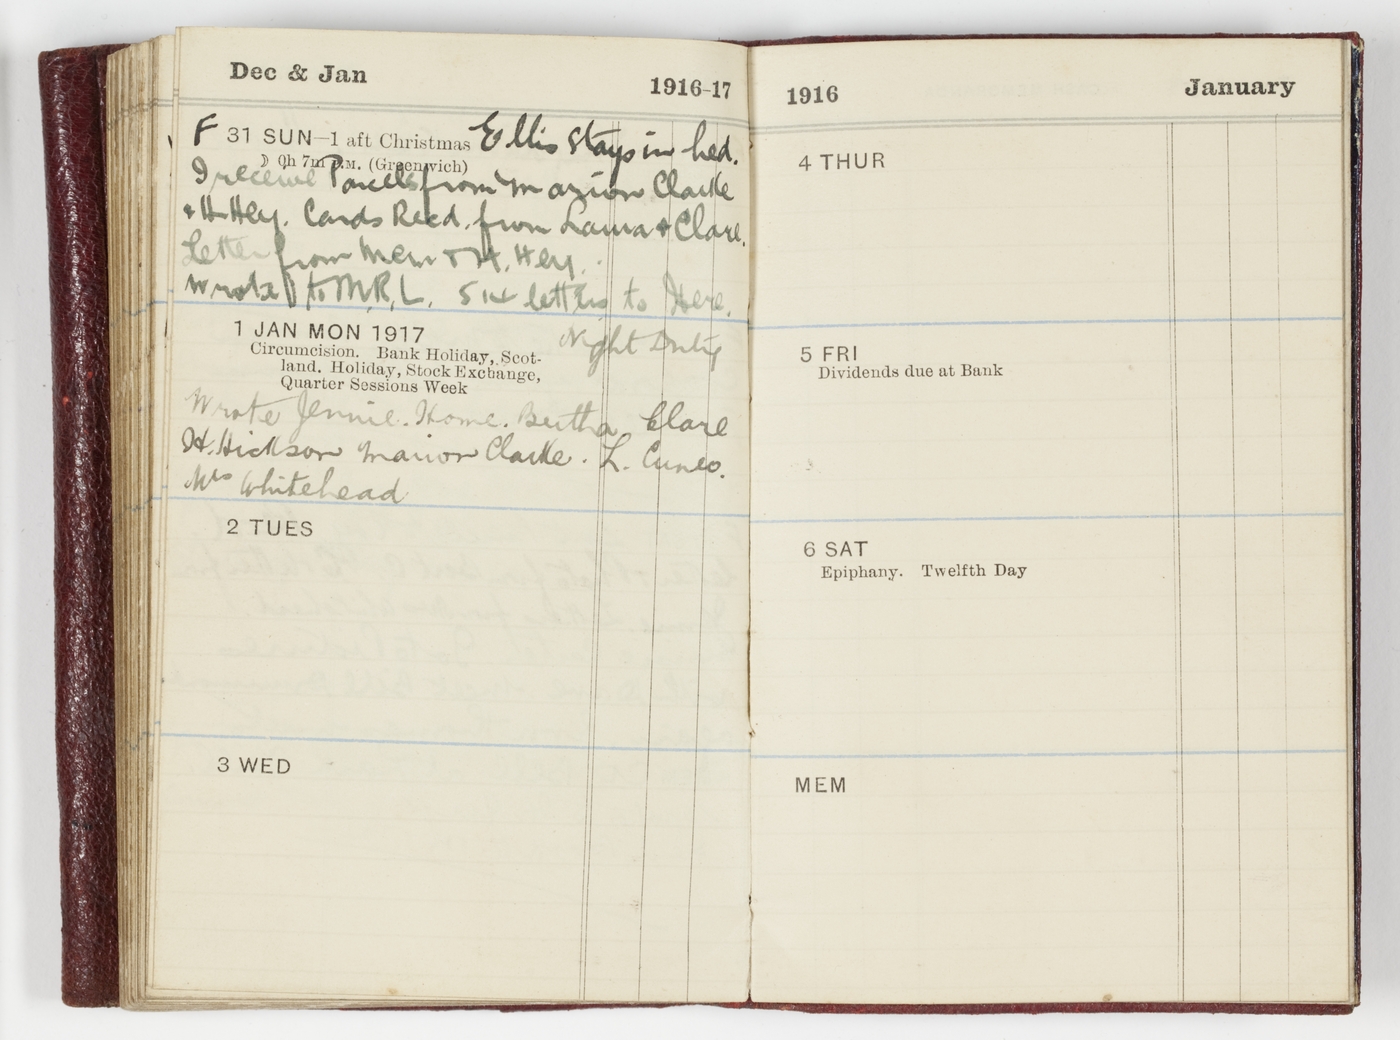 Dec & Jan 1916-17
F 31 SUN—1 aft Christmas Ellis stays in bed.
☽ 0h 7m P.M. (Greenwich)
I receive Parcels from Marion Clarke
& H. Hey. Cards Recd. from Laura & Clare.
Letter from Mem & H. Hey.
Wrote to M.R.L. 514 letters to Here.
1 JAN MON 1917 Night Duty
Circumcision. Bank Holiday, Scot-
land. Holiday, Stock Exchange,
Quarter Sessions Week
Wrote Jennie. Home. Bertha. Clare
H. Hickson Marion Clarke. L. Cuneo.
Mrs Whitehead
2 TUES
3 WED
1916 January
4 THUR
5 FRI
Dividends due at Bank
6 SAT
Epiphany. Twelfth Day
MEM